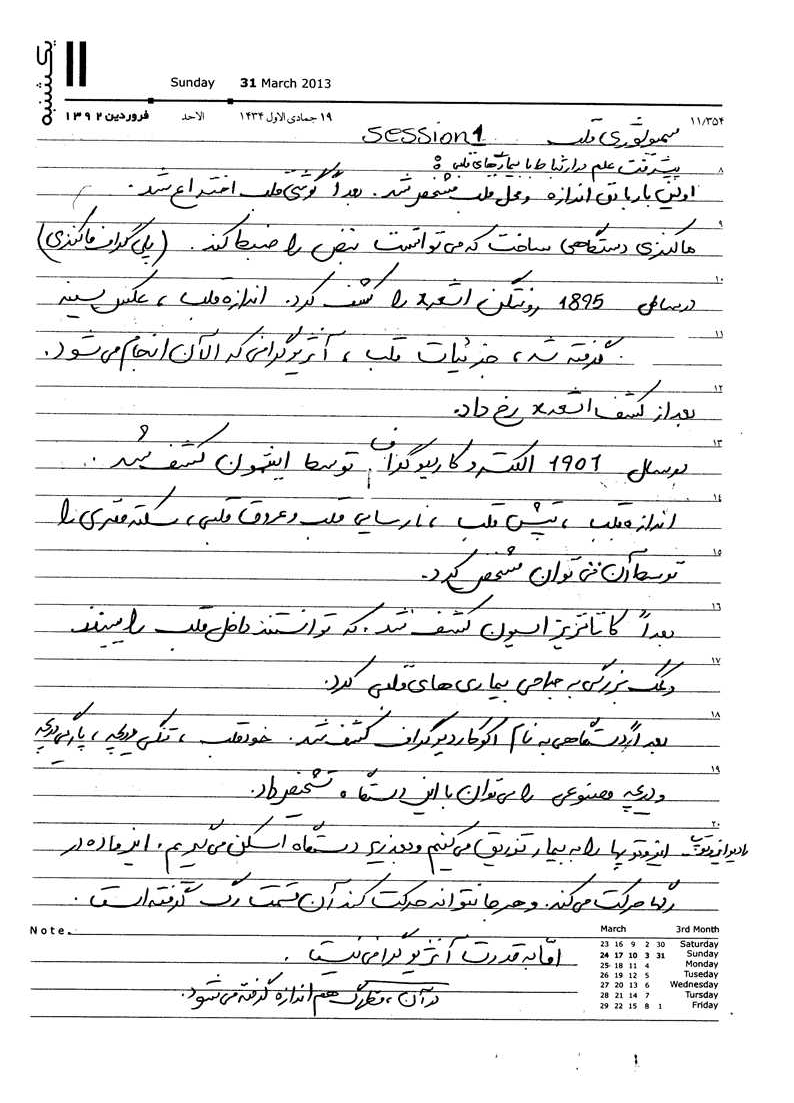 یکشنبه
۱۱
Sunday 31 March 2013
فروردین ۱۳۹۲ الاحد ۱۹ جمادی الاول ۱۴۳۴ ۱۱/۳۵۴
سمیولوژی قلب session 1
۸ پیشرفت علم در ارتباط با بیماریهای قلبی :
اولین بار با دق اندازه و محل قلب مشخص شد. بعداً گوشی قلب اختراع شد.
۹
ماکنزی دستگاهی ساخت که می توانست نبض را ضبط کند. (پلی گراف ماکنزی)
۱۰
در سال 1895 رونتگن اشعه x را کشف کرد. اندازه قلب ، عکس سینه
۱۱
گرفته شد، جزئیات قلب ، آنژیوگرافی که الآن انجام می شود.
۱۲
بعد از کشف اشعه x رخ داد.
۱۳
در سال 1901 الکتروکاردیوگراف توسط اینتهون کشف شد.
۱۴
اندازه قلب ، تپش قلب ، نارسایی قلب و عروق قلبی، سکته مغزی را
۱۵
توسط آن می توان مشخص کرد.
۱۶
بعداً کاتاتریزاسیون کشف شد. که توانستند داخل قلب را ببینند
۱۷
و کمک بزرگی به جراحی بیماری های قلبی کرد.
۱۸
بعداً دستگاهی به نام اکوکاردیوگراف کشف شد. خود قلب ، تنگی دریچه ، پارگی دریچه
۱۹
و دریچه مصنوعی را می توان با این دستگاه تشخیص داد.
۲۰
رادیوایزوتوپ ایزوتوپها را به بیمار تزریق می کنیم و بعد زیر دستگاه اسکن می گیریم. این ماده در
رگها حرکت می کند. و هر جا نتواند حرکت کند آن قسمت رگ گرفته است.
Note. اما به قدرت آنژیوگرافی نیست.
در آن ، قطر رگ هم اندازه گرفته می شود.
March 3rd Month
23 16 9 2 30 Saturday
24 17 10 3 31 Sunday
25 18 11 4 Monday
26 19 12 5 Tuseday
27 20 13 6 Wednesday
28 21 14 7 Tursday
29 22 15 8 1 Friday
۱